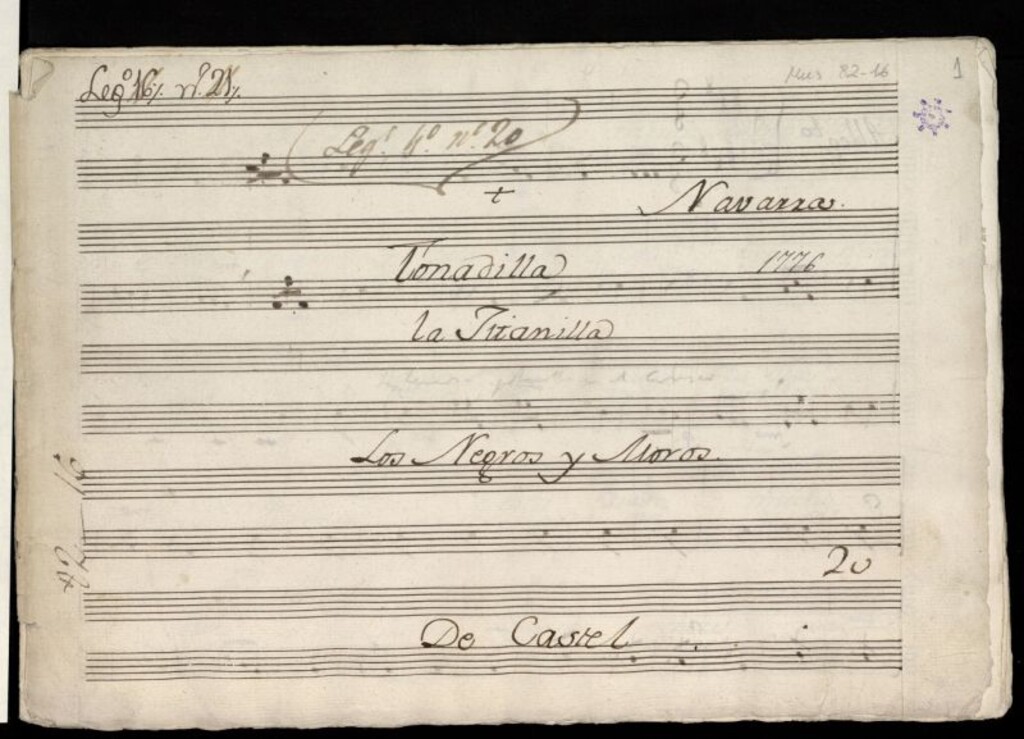 Leg.º 16. n.º 21.
Mus 82-16
1
Leg.º 6.º n.º 20
+
Navarra.
Tonadilla
1776
la Jitanilla
Los Negros y Moros.
20
De Castel